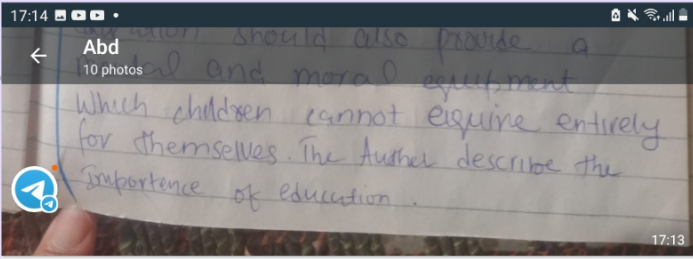 17:14
Abd
10 photos
should also provide a
and moral equipment
Which children cannot equire entirely
for themselves. The Auther describe the
Importence of education.
17:13